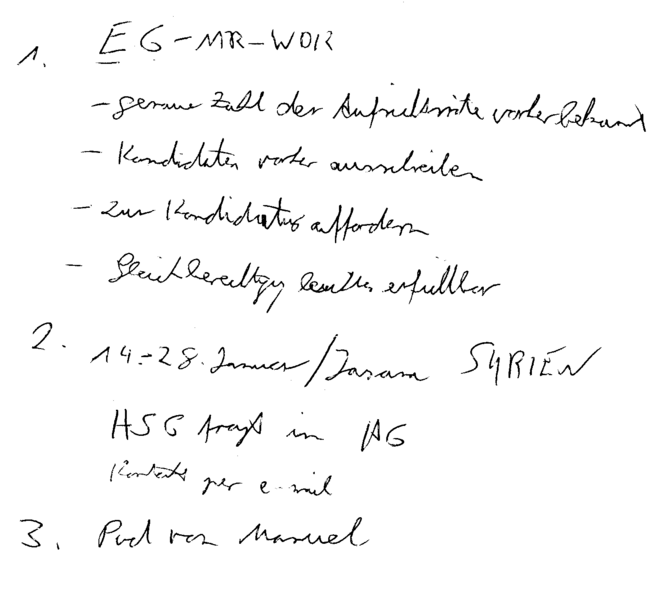 1. EG-MR-WDIR
- genaue Zahl der Aufsichtsräte vorher bekannt
- Kandidaten vorher ausschreiben
- zur Kandidatur auffordern
- Gleichberechtigg leichter erfüllbar
2. 14.-28. Januar / SYRIEN
HSG fragt in AG
Kontakt per e-mail
3. von Manuel